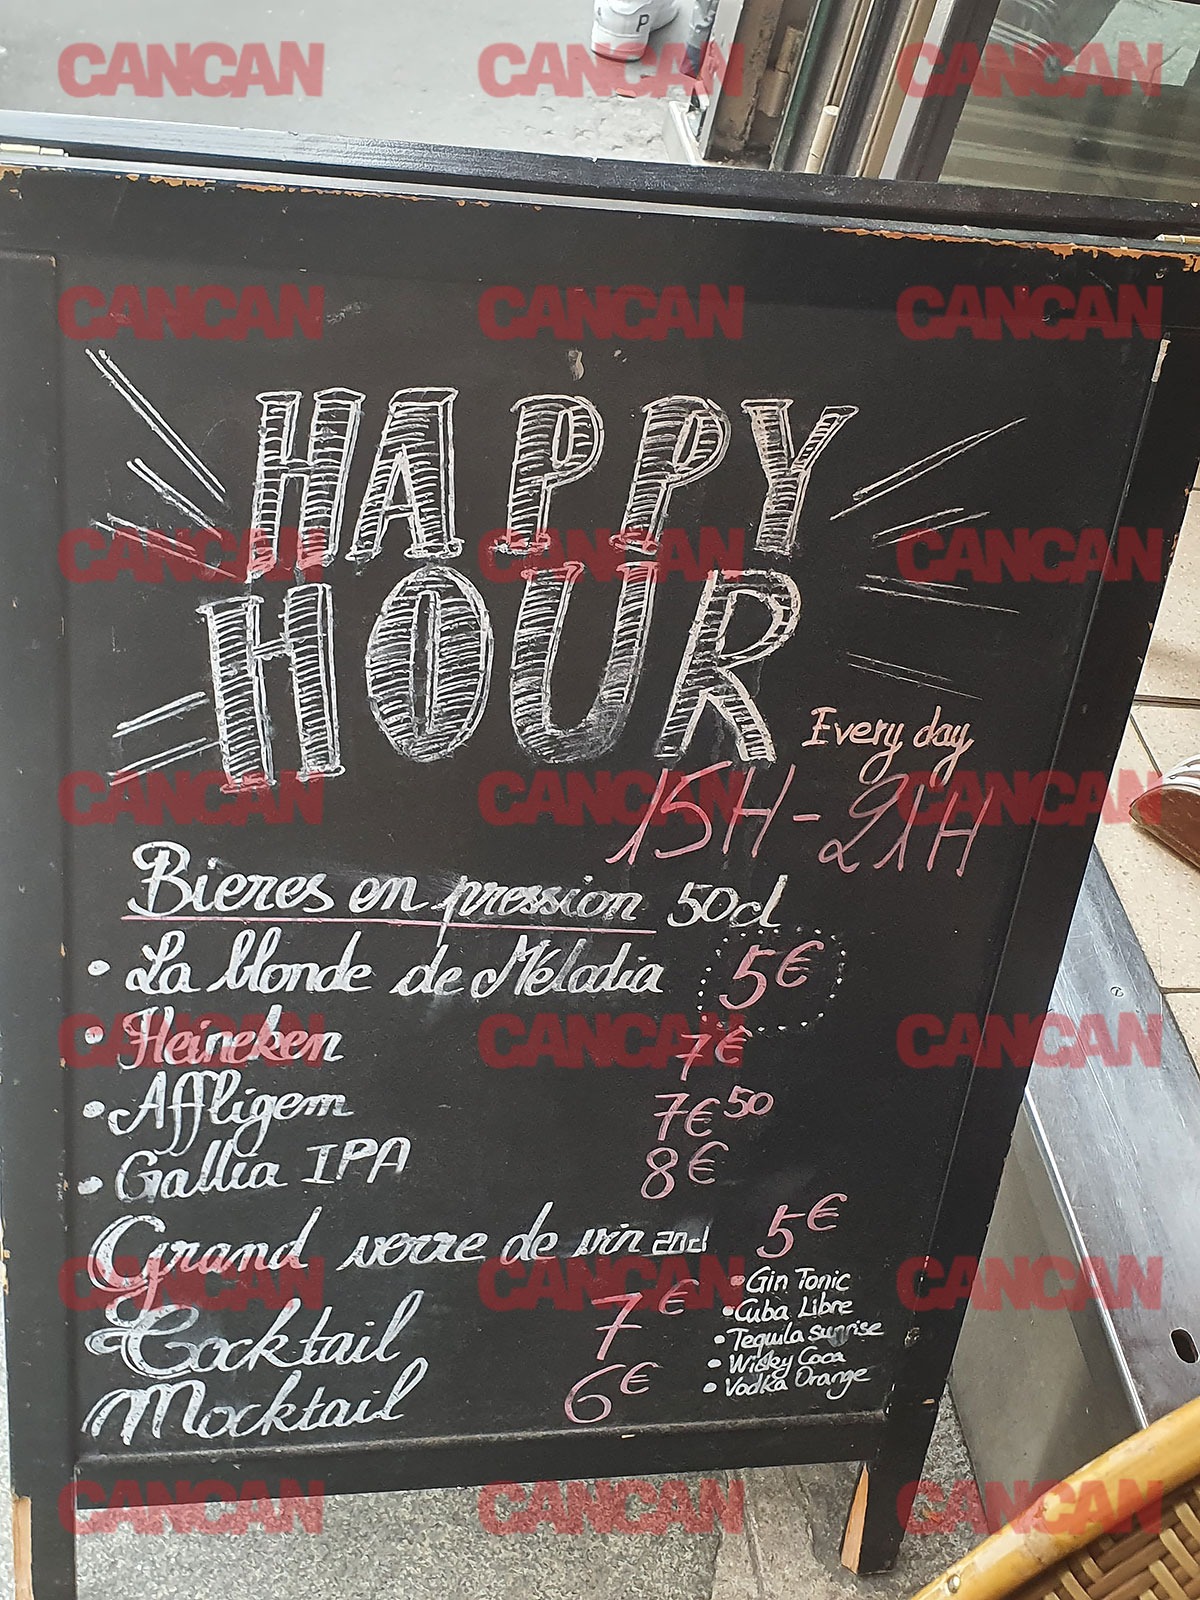 CANCAN CANCAN CANCAN
P
CANCAN CANCAN CANCAN
HAPPY
CANCAN CANCAN CANCAN
HOUR
Every day
CANCAN CANCAN CANCAN
15H - 21H
Bieres en pression 50cl
• La blonde de Méladia 5€
CANCAN CANCAN CANCAN
• Heineken 7€
• Affligem 7€50
• Gallia IPA 8€
Grand verre de vin 20cl 5€
CANCAN CANCAN CANCAN
Cocktail 7€
• Gin Tonic
• Cuba Libre
• Tequila sunrise
• Wisky Coca
• Vodka Orange
Mocktail 6€
CANCAN CANCAN CANCAN